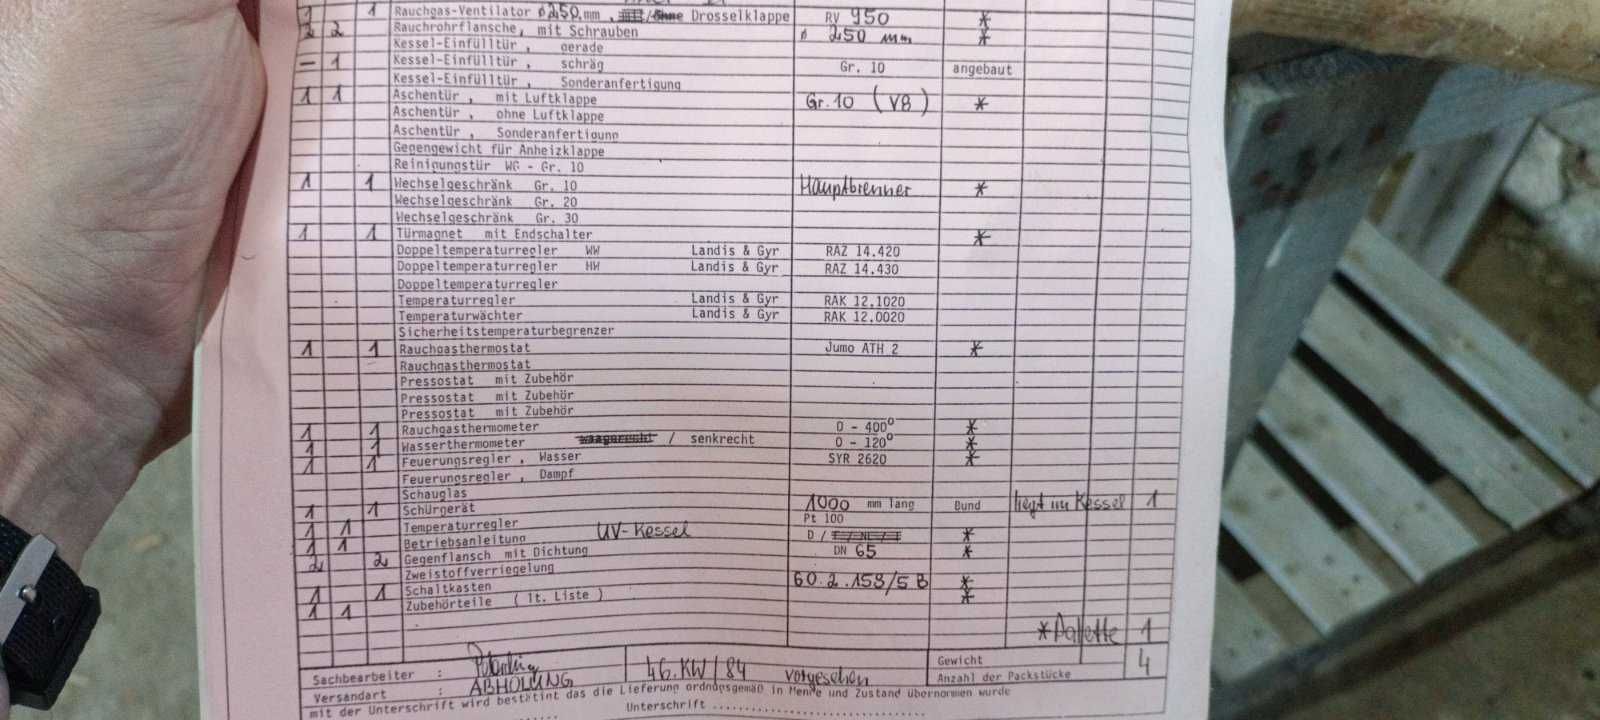 1 1 Rauchgas-Ventilator ø 250 mm, /ohne Drosselklappe RV 950 *
2 2 Rauchrohrflansche, mit Schrauben ø 250 mm *
Kessel-Einfülltür , gerade
– 1 Kessel-Einfülltür , schräg Gr. 10 angebaut
Kessel-Einfülltür , Sonderanfertigung
1 1 Aschentür , mit Luftklappe Gr. 10 (V8) *
Aschentür , ohne Luftklappe
Aschentür , Sonderanfertigung
Gegengewicht für Anheizklappe
Reinigungstür WG - Gr. 10
1 1 Wechselgeschränk Gr. 10 Hauptbrenner *
Wechselgeschränk Gr. 20
Wechselgeschränk Gr. 30
1 1 Türmagnet mit Endschalter *
Doppeltemperaturregler WW Landis & Gyr RAZ 14.420
Doppeltemperaturregler HW Landis & Gyr RAZ 14.430
Doppeltemperaturregler
Temperaturregler Landis & Gyr RAK 12.1020
Temperaturwächter Landis & Gyr RAK 12.0020
Sicherheitstemperaturbegrenzer
1 1 Rauchgasthermostat Jumo ATH 2 *
Rauchgasthermostat
Pressostat mit Zubehör
Pressostat mit Zubehör
Pressostat mit Zubehör
1 1 Rauchgasthermometer 0 - 400° *
1 1 Wasserthermometer waagerecht / senkrecht 0 - 120° *
1 1 Feuerungsregler , Wasser SYR 2620 *
Feuerungsregler , Dampf
Schauglas
1 1 Schürgerät 1000 mm lang Bund liegt im Kessel 1
Temperaturregler Pt 100
1 1 Betriebsanleitung UV-Kessel D / F / NL / E *
2 2 Gegenflansch mit Dichtung DN 65 *
Zweistoffverriegelung
1 1 Schaltkasten 60.2.158/5 B *
1 1 Zubehörteile ( lt. Liste ) *
* Palette 1
Sachbearbeiter : 46. KW/84 vorgesehen Gewicht
Versandart : ABHOLUNG Anzahl der Packstücke 4
mit der Unterschrift wird bestätint das die Lieferung ordnungsgemäß in Menge und Zustand übernommen wurde
Unterschrift